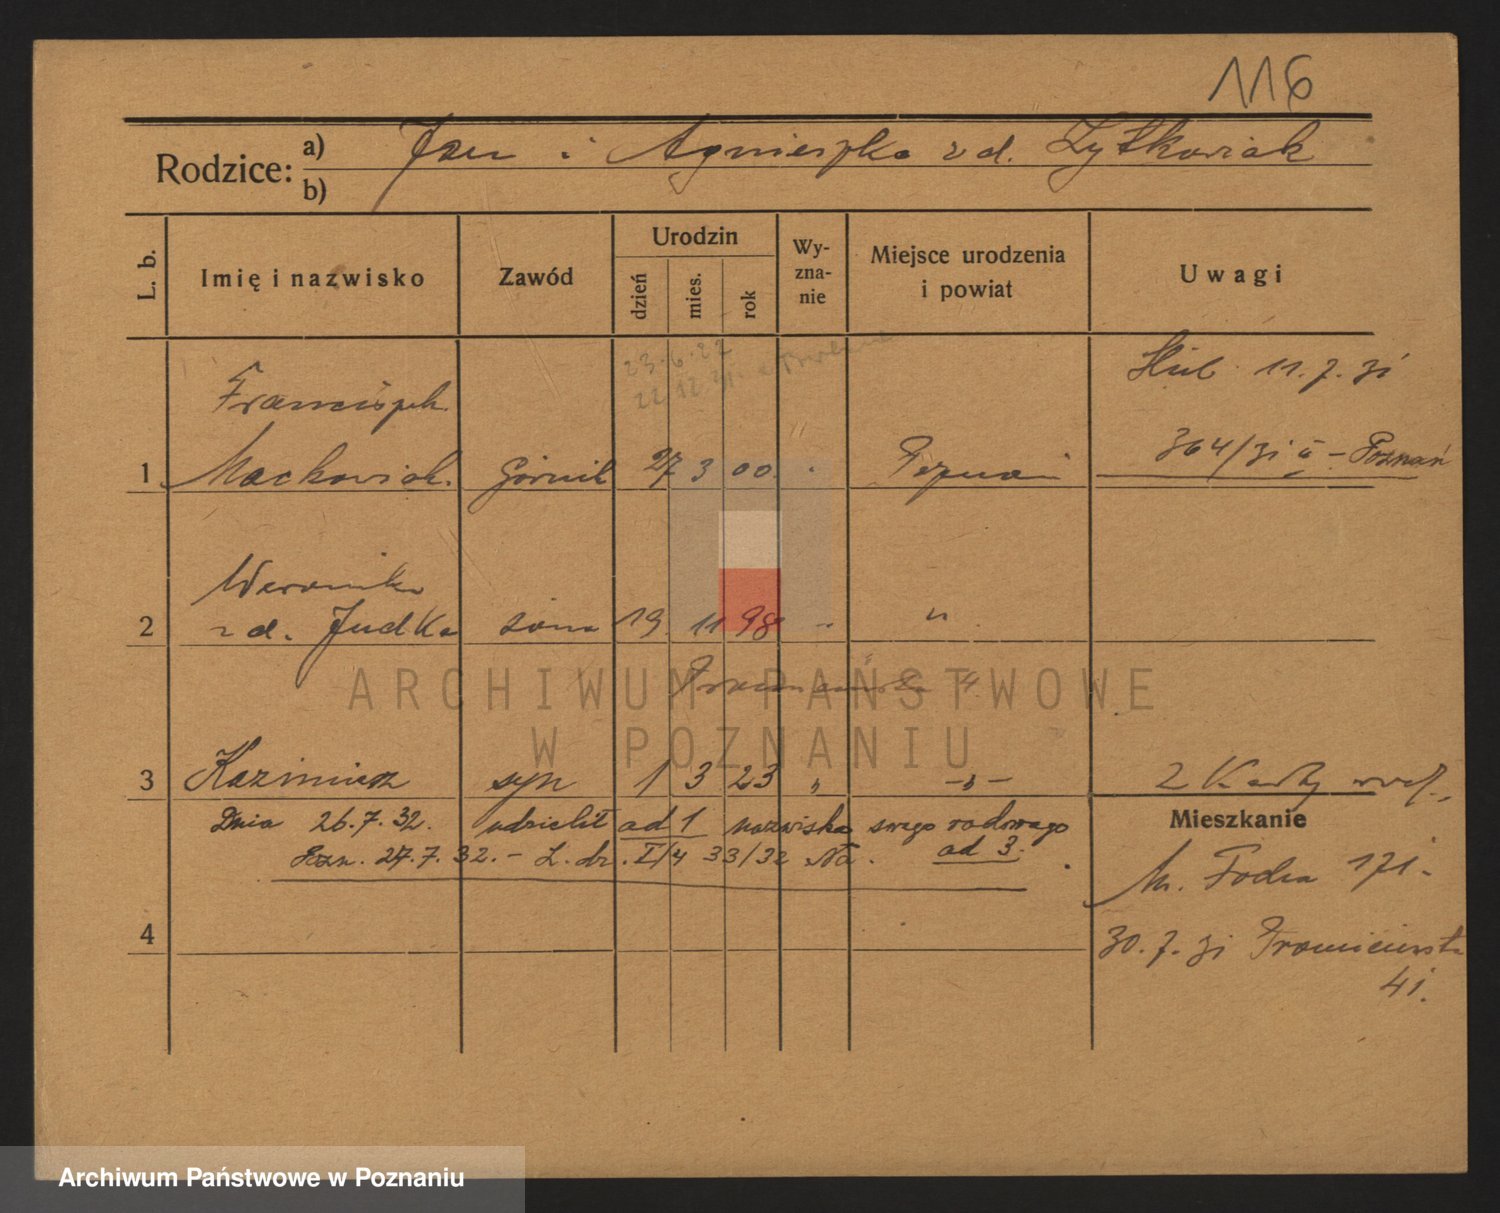 116
Rodzice: a) Jan i Agnieszka zd. Zytkowiak
b)
L. b.
Imię i nazwisko
Zawód
Urodzin
dzień
mies.
rok
Wy-
zna-
nie
Miejsce urodzenia
i powiat
Uwagi
23.6.27
22.12.31
Franciszek
Ślub 11.7.31
364/31 - Poznań
1 Mackowiak. Górnik 27 3 00 Poznań
Weronika
2 zd. Judka żona 19 11 98 - "
3 Kazimierz syn 1 3 23 " -"-
2 Karty
Dnia 26.7.32. udzielił ad 1 nazwiska swego rodowego
Pozn. 27.7.32. - L. dz. I/4 33/32 ad 3.
Mieszkanie
M. Focha 171.
4
30.7.31
41.
ARCHIWUM PAŃSTWOWE
W POZNANIU
Archiwum Państwowe w Poznaniu